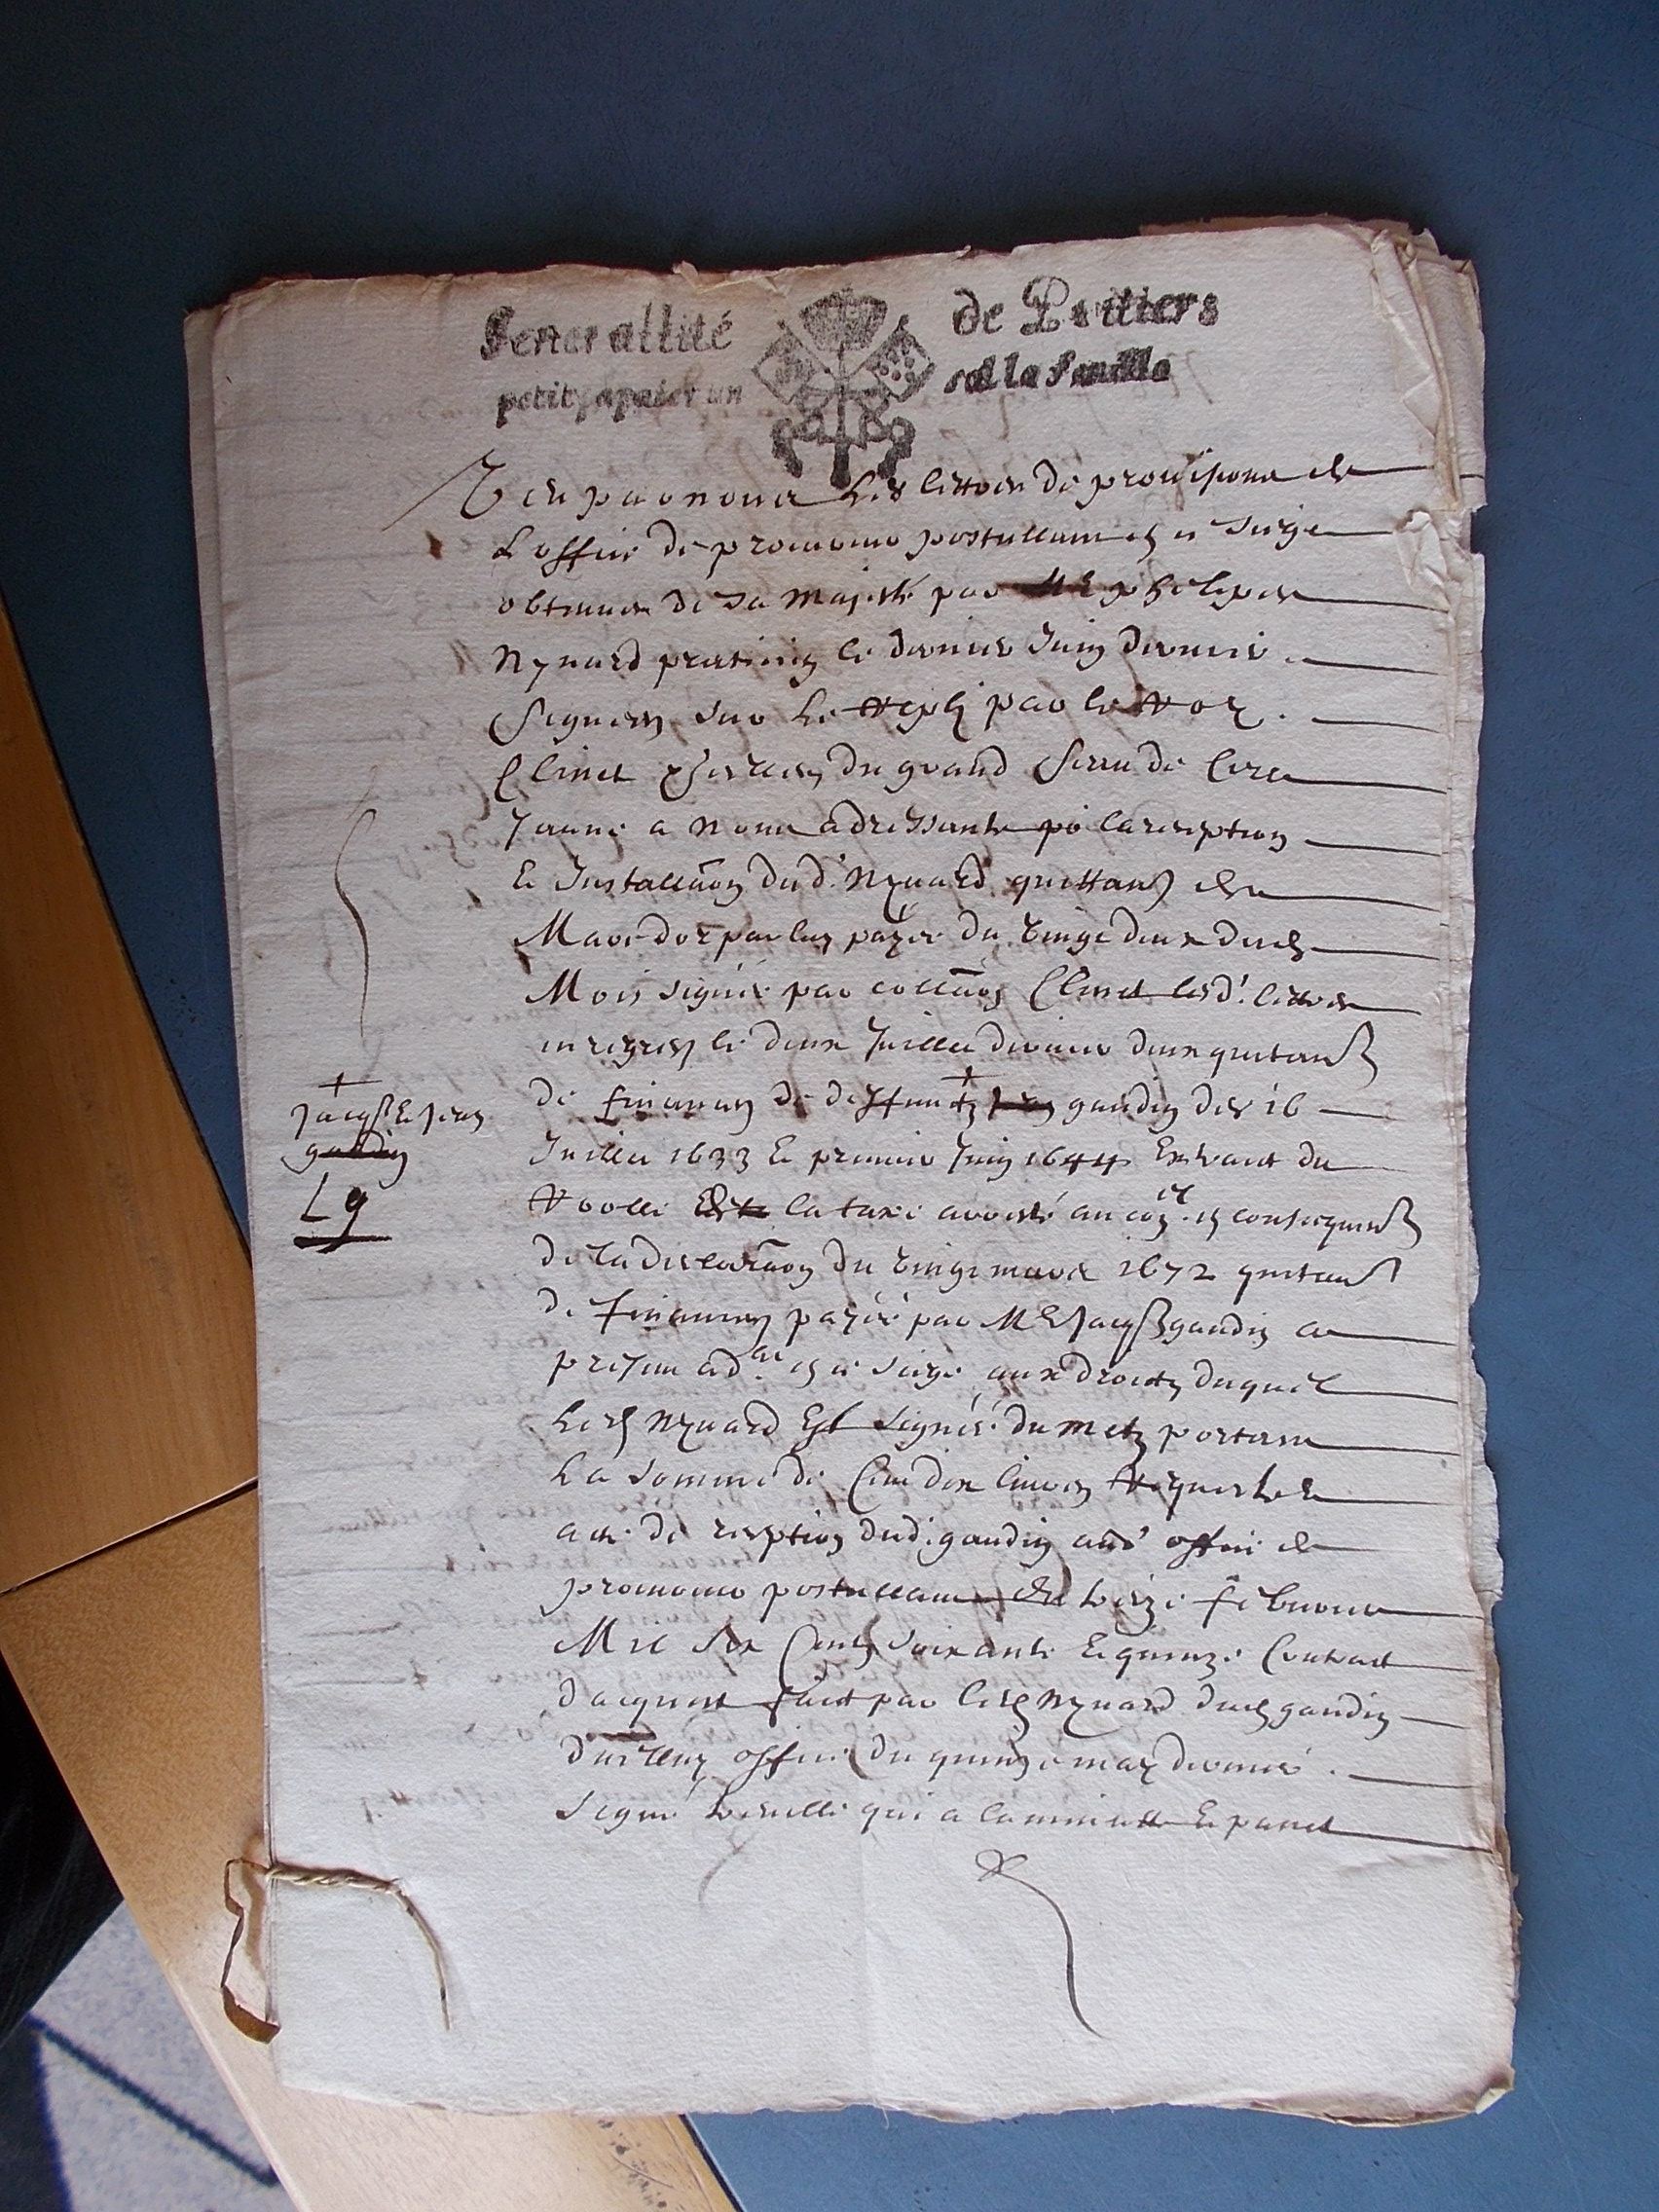 Generallité de Poitiers
petit papaier un sol la feuille
Veu par nous les lettres de provisions de
L office de procureur postullant en ce siege
obtenues de sa majesté par Me philipes
Nynard praticien le dernier Juin dernier
signees sur le reply par le Roy
Clinet scellees du grand sceau de cire
Jaune a nous adressante po la reception
Et Installaon dud. Nynard quittance de
Marc dor par luy payee du vingt deux dud
Mois signée par collaon Clinet lesd. lettres
enregres le deux Juillet dernier deux quitances
de finances de deffuncts gaudin des 16
Juillet 1633 Et premier Juin 1644 Extraict du
Roolle de la taxe arresté au conel en consequence
de la declaraon du vingt mars 1672 quitance
de finances payéé par Me Jacques gaudin a
present ad en ce siege aux droicts duquel
Led Nynard Est signéé du metz portant
La somme de Cent dix livres Requeste
acte de reception dud. gaudin aud office de
procureur postullant du treize febvrier
Mil six Cents soixante Et quinze Contract
dacquest faict par led Nynard dud gaudin
dudict office du quinze may dernier
signé qui a la minutte Et paret
+
Jacques Et Jean
gaudin
L g